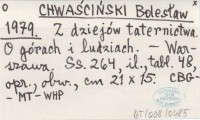 CHWAŚCIŃSKI Bolesław
1979. Z dziejów taternictwa.
O górach i ludziach. – War-
szawa. Ss. 264, il., tabl. 48,
opr., obw., cm 21 x 15. CBG-
- MT - WHP
BT/008/0485